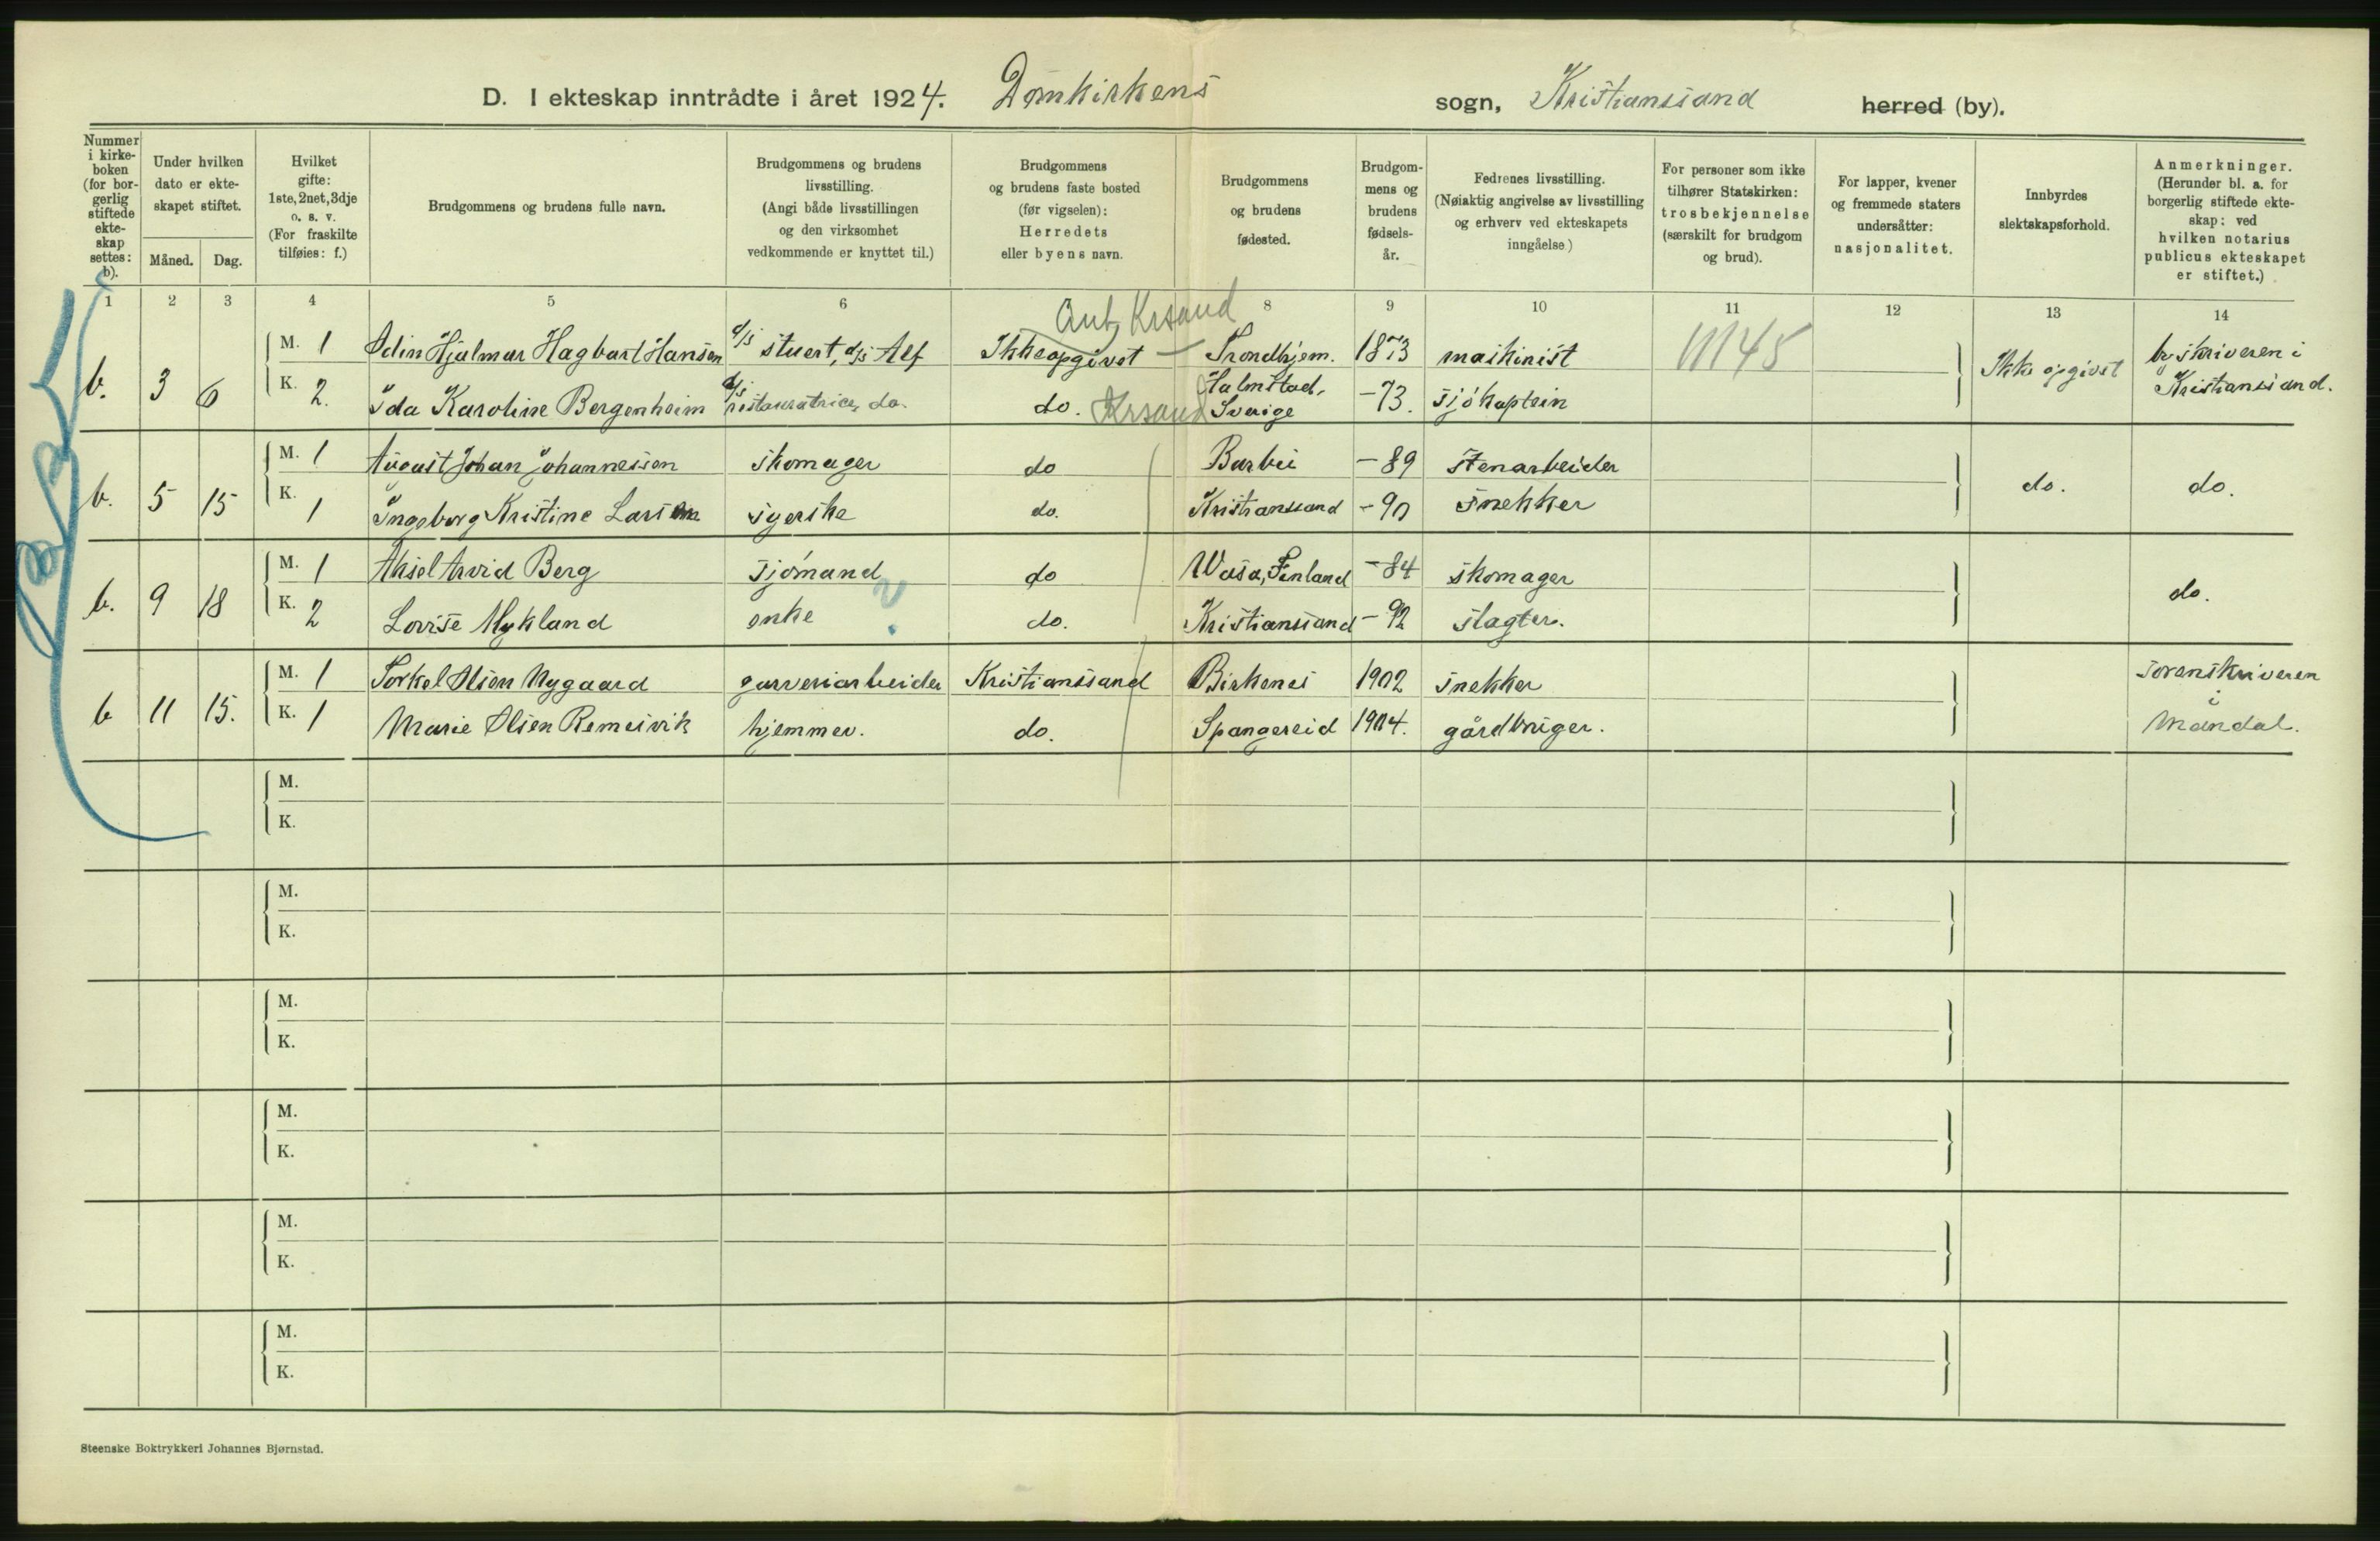 D. I ekteskap inntrådte i året 1924. Domkirkens sogn, Kristianssand herred (by).
Nummer i kirkeboken (for borgerlig stiftede ekteskap settes: b).
Under hvilken dato er ekteskapet stiftet.
Måned. Dag.
Hvilket gifte: 1ste, 2net, 3dje o. s. v. (For fraskilte tilføies: f.)
Brudgommens og brudens fulle navn.
Brudgommens og brudens livsstilling. (Angi både livsstillingen og den virksomhet vedkommende er knyttet til.)
Brudgommens og brudens faste bosted (før vigselen): Herredets eller byens navn.
Brudgommens og brudens fødested.
Brudgommens og brudens fødselsår.
Fedrenes livsstilling. (Nøiaktig angivelse av livsstilling og erhverv ved ekteskapets inngåelse)
For personer som ikke tilhører Statskirken: trosbekjennelse (særskilt for brudgom og brud).
For lapper, kvener og fremmede staters undersåtter: nasjonalitet.
Innbyrdes slektskapsforhold.
Anmerkninger. (Herunder bl. a. for borgerlig stiftede ekteskap: ved hvilken notarius publicus ekteskapet er stiftet.)
1 2 3 4 5 6 8 9 10 11 12 13 14
Ant. Krsand
b. 3 6 M. 1 Odin Hjalmar Hagbart Hansen d/s stuert, d/s Alf Ikke opgivet Trondhjem. 1873 maskinist 11145 Ikke opgivet byskriveren i Kristianssand.
K. 2. Ida Karoline Bergenheim d/s restauratrice, do. do. Krsand Halmstad, Sverige -73. sjökaptein
b. 5 15 M. 1 August Johan Johannessen skomager do Barbu -89 stenarbeider do. do.
K. 1 Ingeborg Kristine Larsen syerske do. Kristianssand -90 snekker
b. 9 18 M. 1 Aksel Arvid Berg sjömand do Wasa, Finland -84 skomager do.
K. 2 Lovise Mykland enke do. Kristianssand -92 slagter.
b 11 15. M. 1 Torkel Olsen Nygaard garveriarbeider Kristianssand Birkenes 1902 snekker sorenskriveren i Mandal.
K. 1 Marie Olsen Remesvik hjemmev. do. Spangereid 1904. gårdbruger.
M.
K.
M.
K.
M.
K.
M.
K.
M.
K.
M.
K.
Steenske Boktrykkeri Johannes Bjørnstad.